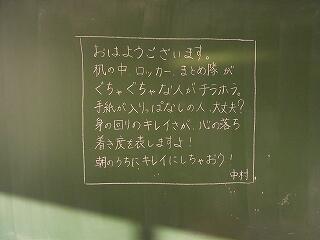 おはようございます。
机の中、ロッカー、まとめ隊が
ぐちゃぐちゃな人がチラホラ。
手紙が入りっぱなしの人、大丈夫？
身の回りのキレイさが、心の落ち
着き度を表しますよ！
朝のうちにキレイにしちゃおう！
中村